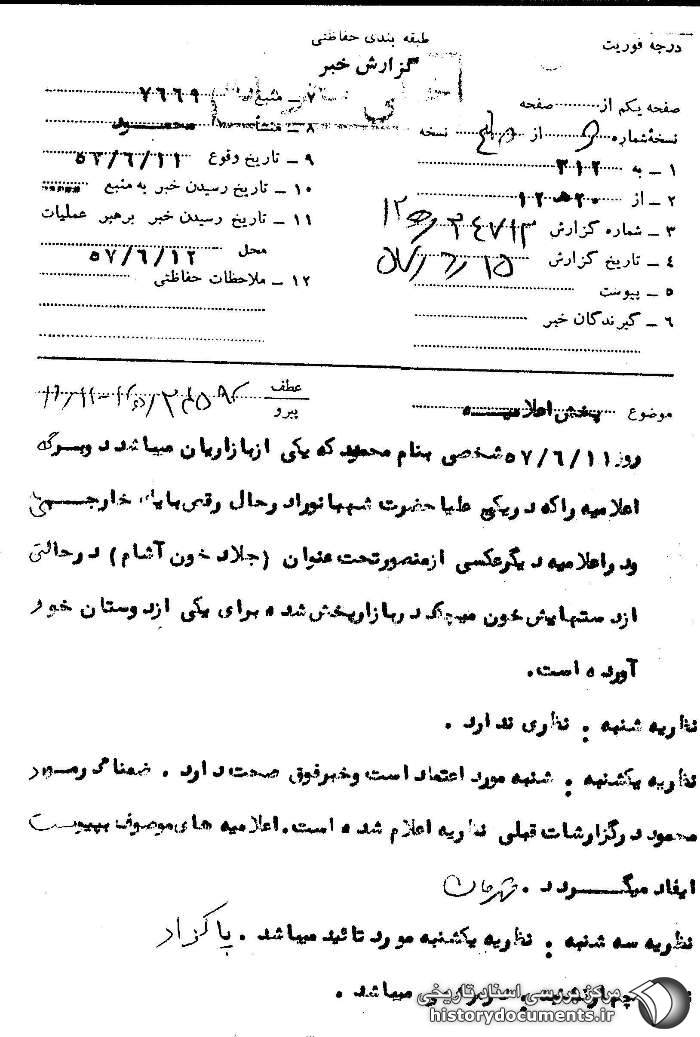 درجه فوریت
طبقه بندی حفاظتی
گزارش خبر
صفحه یکم از صفحه
نسخهٔ شماره از نسخه
۱ ـ به ۳۱۲
۲ ـ از ۲۰ ه ۱۲
۳ ـ شماره گزارش
۴ ـ تاریخ گزارش ۵۷/۶/۱۵
۵ ـ پیوست
۶ ـ گیرندگان خبر
۷ ـ منبع ۷۶۶۹
۸ ـ منشأ محمود
۹ ـ تاریخ وقوع ۵۷/۶/۱۱
۱۰ ـ تاریخ رسیدن خبر به منبع
۱۱ ـ تاریخ رسیدن خبر برهبر عملیات
محل ۵۷/۶/۱۲
۱۲ ـ ملاحظات حفاظتی
موضوع پخش اعلامیه
عطف
پیرو
روز ۵۷/۶/۱۱ شخصی بنام محمود که یکی ازبازاریان میباشد دوبرگه
اعلامیه راکه دریکی علیاحضرت شهبانورادرحال رقص بایک خارجی
ودراعلامیه دیگرعکسی ازمنصورتحت عنوان (جلاد خون آشام) درحالتی
ازدستهایش خون میچکد دربازارپخش شده برای یکی ازدوستان خود
آورده است.
نظریه شنبه : نظری ندارد .
نظریه یکشنبه : شنبه مورد اعتماد است وخبرفوق صحت دارد . ضمنا درمورد
محمود درگزارشات قبلی نظریه اعلام شده است. اعلامیه های موصوف بپیوست
ایفاد میگردد .
نظریه سه شنبه : نظریه یکشنبه مورد تائید میباشد . پاکزاد
میباشد .
مرکز بررسی اسناد تاریخی
historydocuments.ir